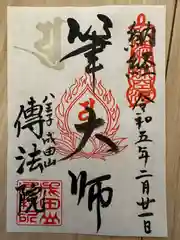 納経
令和五年二月廿一日
筆大師
八王子成田山
傳法院